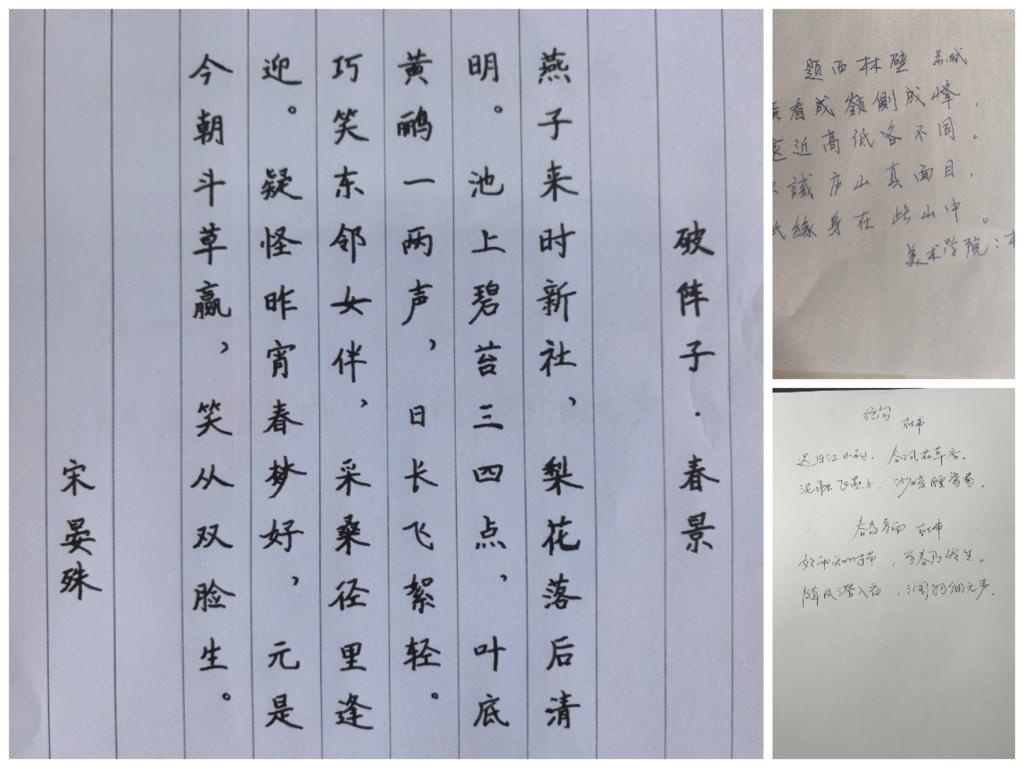 破阵子·春景
燕子来时新社、梨花落后清
明。池上碧苔三四点、叶底
黄鹂一两声，日长飞絮轻。
巧笑东邻女伴，采桑径里逢
迎。疑怪昨宵春梦好，元是
今朝斗草赢，笑从双脸生。
宋晏殊
题西林壁 苏轼
看成嶺側成峰，
遠近高低各不同。
識庐山真面目，
緣身在此山中。
美术学院：
绝句 杜甫
迟日江山丽，春风花草香。
泥融飞燕子，沙暖睡鸳鸯。
春夜喜雨 杜甫
好雨知时节，当春乃发生。
随风潜入夜，润物细无声。